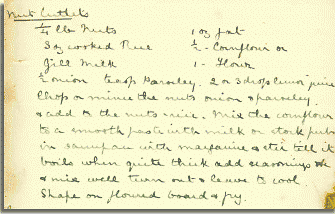 Nut Cutlets
1/4 lb Nuts 1 oz fat
3 oz cooked Rice 1/2 - Cornflour or
Gill Milk 1 - Flour
1/2 onion teasp Parsley. 2 or 3 drops lemon juice
Chop or mince the nuts onion & parsley
& add to the nuts rice. Mix the cornflour
to a smooth paste with milk or stock put
in saucepan with margarine & stir till it
boils when quite thick add seasonings
& mix well turn out & leave to cool.
Shape on floured board & fry.